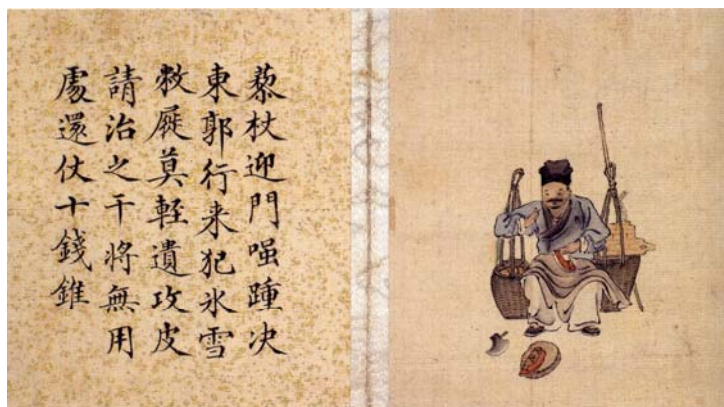 藜杖迎門嗤踵决
東郭行来犯氷雪
敝屣莫輊遺攻皮
請治之干將無用
處還仗十錢錐